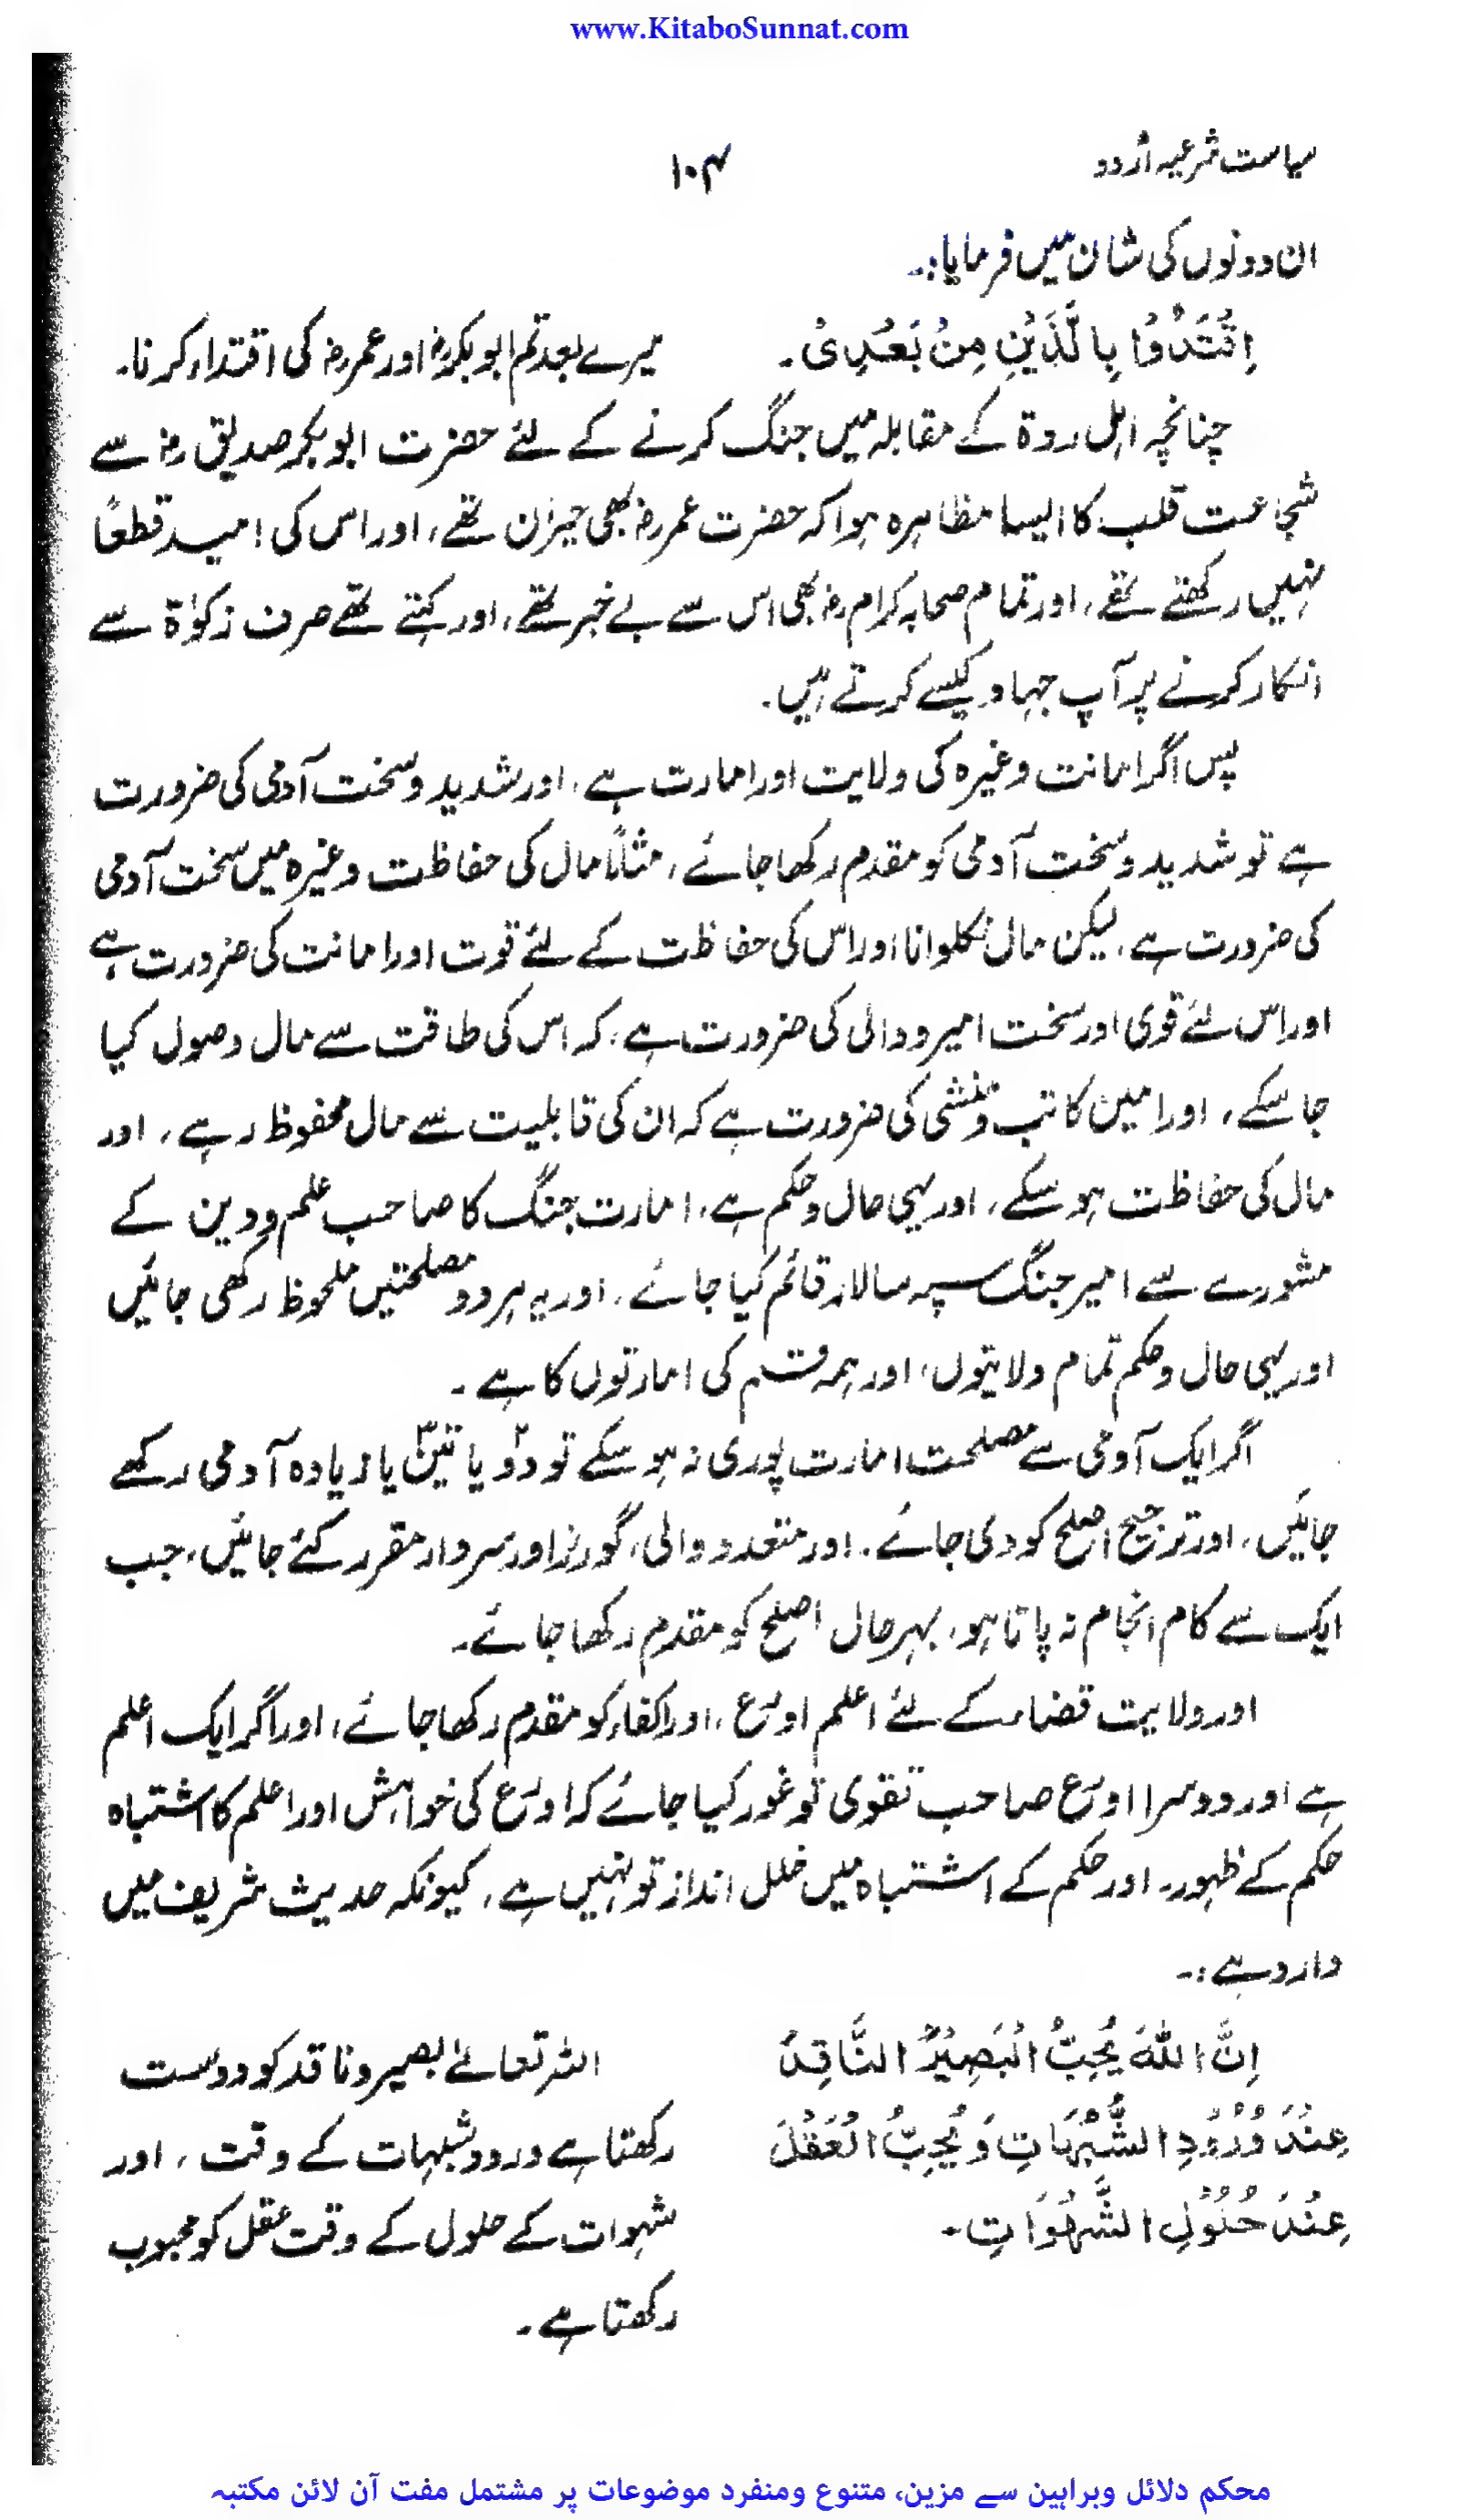 www.KitaboSunnat.com
سیاست شرعیہ اُردو
۱۰۴
ان دونوں کی شان میں فرمایا:۔
اِقْتَدُوْا بِالَّذَیْنِ مِنْ بَعْدِیْ۔
میرے بعد تم ابوبکرؓ اور عمرؓ کی اقتداء کرنا۔
چنانچہ اہل ردۃ کے مقابلہ میں جنگ کرنے کے لئے حضرت ابوبکر صدیقؓ سے
شجاعت قلب کا ایسا مظاہرہ ہوا کہ حضرت عمرؓ بھی حیران تھے، اور اس کی امید قطعاً
نہیں رکھتے تھے، اور تمام صحابہ کرامؓ بھی اس سے بے خبر تھے، اور کہتے تھے صرف زکوٰۃ سے
انکار کرنے پر آپ جہاد کیسے کرتے ہیں۔
پس اگر امانت وغیرہ کی ولایت اور امارت ہے، اور شدید و سخت آدمی کی ضرورت
ہے تو شدید و سخت آدمی کو مقدم رکھا جائے، مثلاً مال کی حفاظت وغیرہ میں سخت آدمی
کی ضرورت ہے، لیکن مال نکلوانا اور اس کی حفاظت کے لئے قوت اور امانت کی ضرورت ہے
اور اس لئے قوی اور سخت امیر و والی کی ضرورت ہے، کہ اس کی طاقت سے مال وصول کیا
جا سکے، اور امین کاتب و منشی کی ضرورت ہے کہ ان کی قابلیت سے مال محفوظ رہے، اور
مال کی حفاظت ہو سکے، اور یہی حال و حکم ہے، امارت جنگ کا صاحب علم و دین کے
مشورے سے امیر جنگ سپہ سالار قائم کیا جائے، اور یہ ہر دو مصلحتیں ملحوظ رکھی جائیں
اور یہی حال و حکم تمام ولایتوں، اور ہمہ قسم کی امارتوں کا ہے۔
اگر ایک آدمی سے مصلحت امارت پوری نہ ہو سکے تو دو یا تین یا زیادہ آدمی رکھے
جائیں، اور ترجیح اصلح کو دی جائے۔ اور متعدد والی، گورنر اور سردار مقرر کئے جائیں، جب
ایک سے کام انجام نہ پاتا ہو، بہر حال اصلح کو مقدم رکھا جائے۔
اور ولایت قضاء کے لئے اعلم اورع، اور اکفاء کو مقدم رکھا جائے، اور اگر ایک اعلم
ہے اور دوسرا اورع صاحب تقوی تو غور کیا جائے کہ اورع کی خواہش اور اعلم کا اشتباہ
حکم کے ظہور۔ اور حکم کے اشتباہ میں خلل انداز تو نہیں ہے، کیونکہ حدیث شریف میں
وارد ہے:۔
اِنَّ اللہَ یُحِبُّ الْبَصِیْرَ النَّاقِدَ
عِنْدَ وُرُوْدِ الشُّبْہَاتِ وَ یُحِبُّ الْعَقْلَ
عِنْدَ حُلُوْلِ الشَّہَوَاتِ۔
اللہ تعالےٰ بصیر و ناقد کو دوست
رکھتا ہے ورود شبہات کے وقت، اور
شہوات کے حلول کے وقت عقل کو محبوب
رکھتا ہے۔
محکم دلائل وبراہین سے مزین، متنوع ومنفرد موضوعات پر مشتمل مفت آن لائن مکتبہ